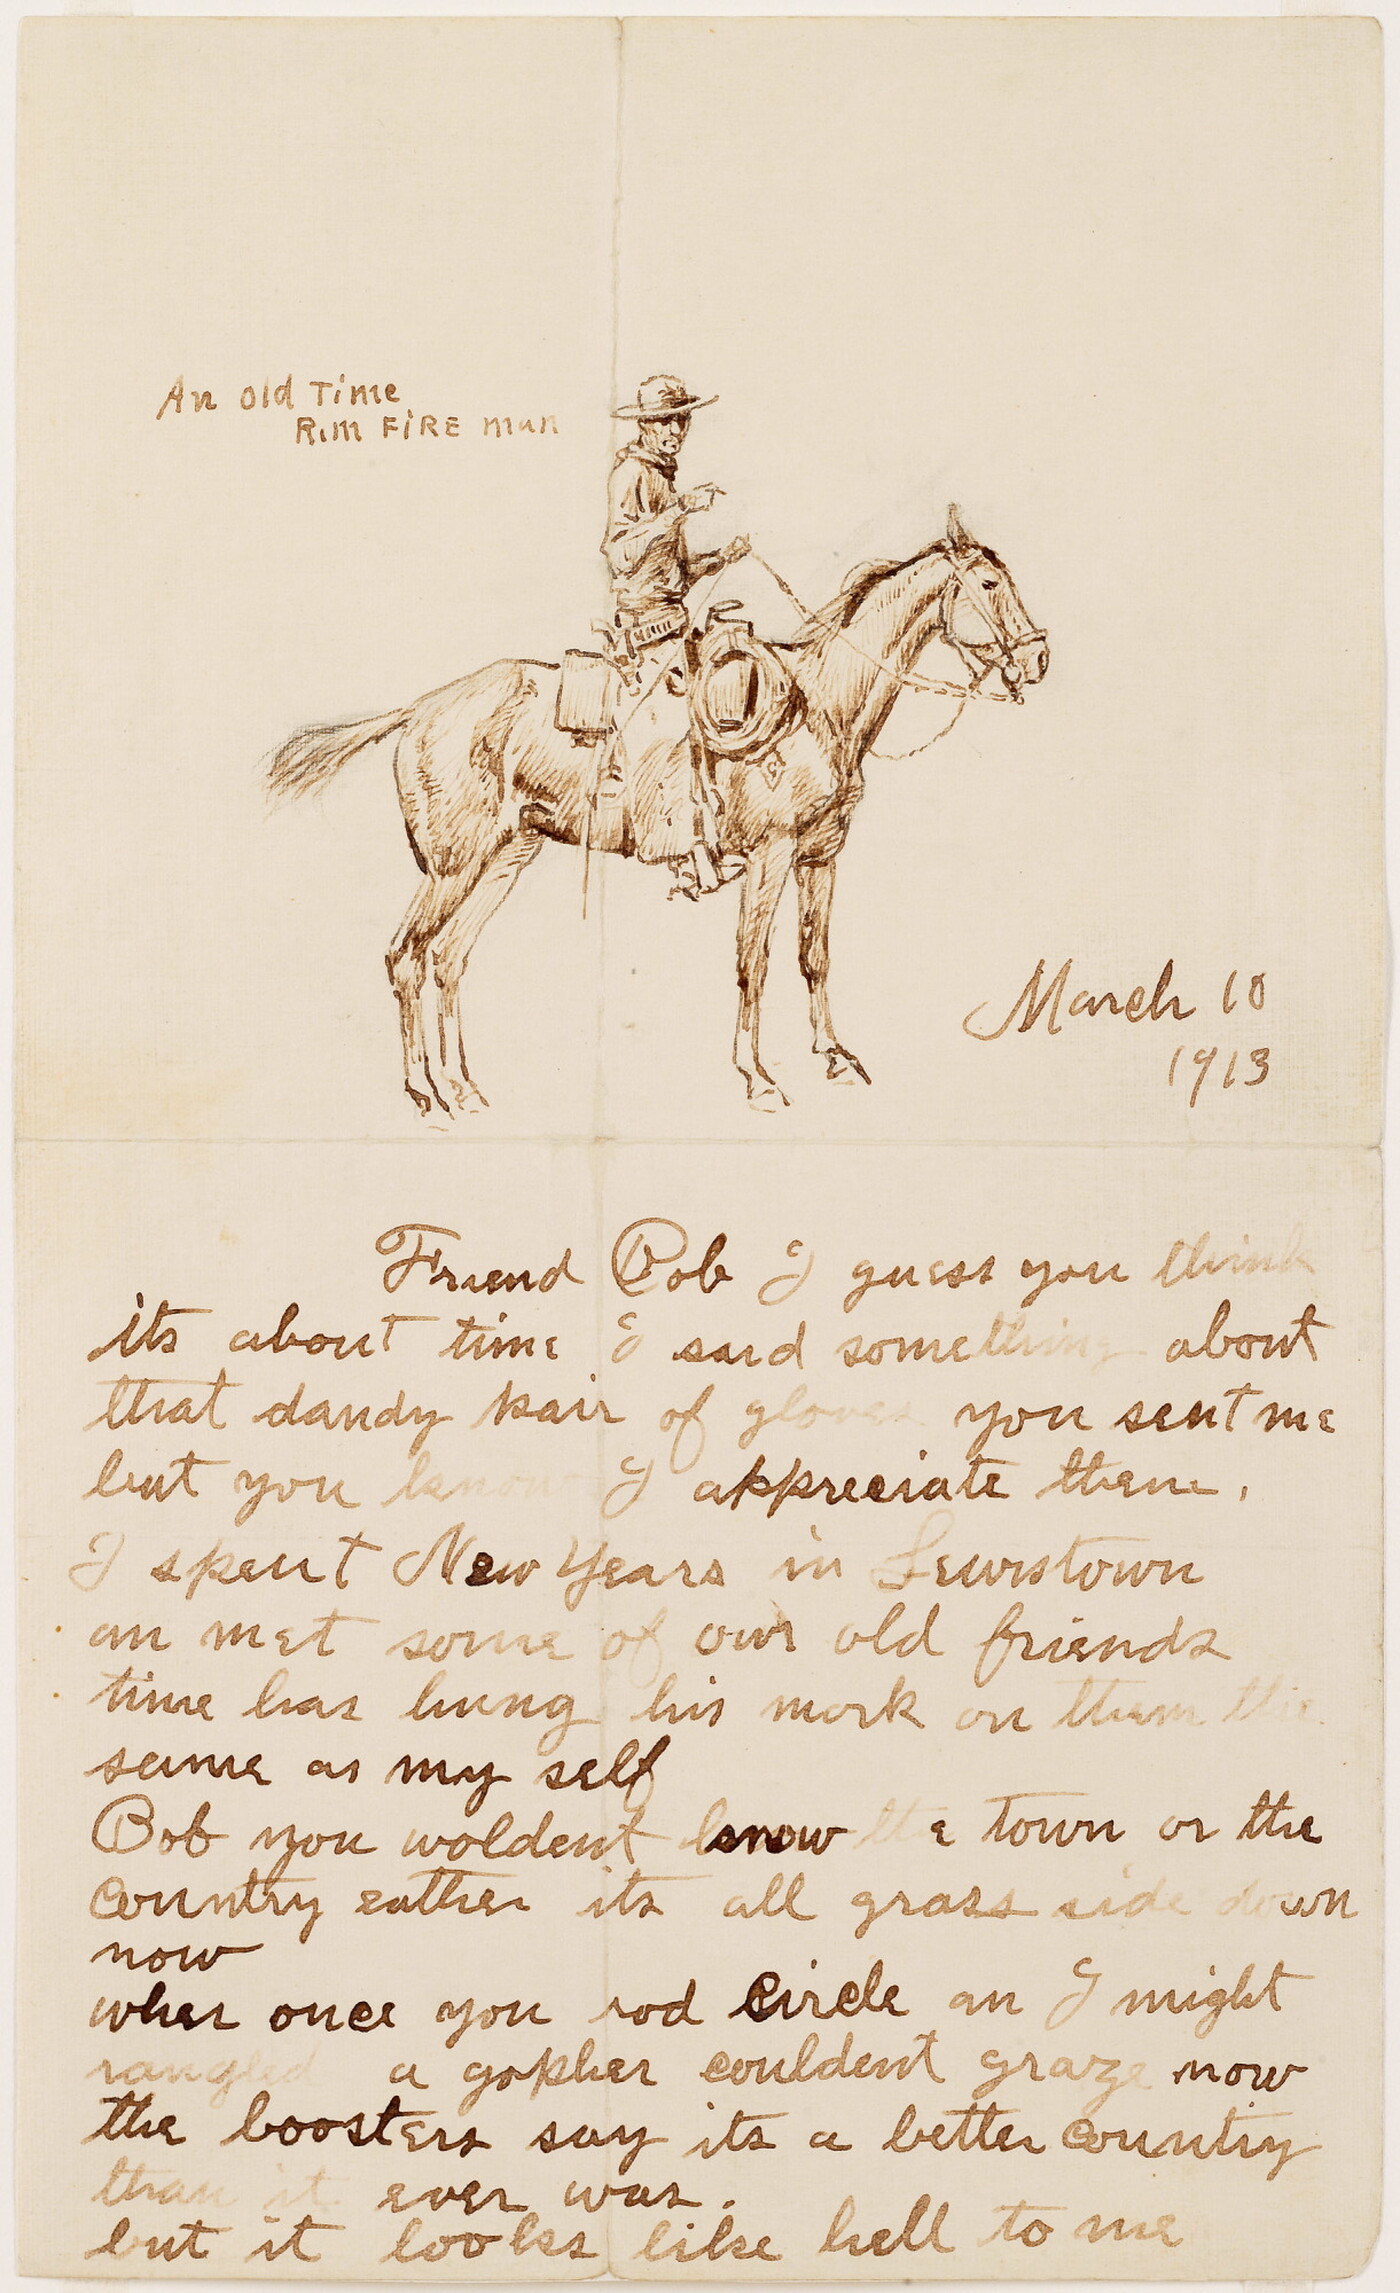 An Old Time
RIM FIRE man
March 10
1913
Friend Bob I guess you think
its about time I said something about
that dandy pair of gloves you sent me
but you know I appreciate them.
I spent New Years in Lewistown
an met some of our old friends
time has hung his mark on them the
same as my self
Bob you woldent know the town or the
country eather its all grass side down
now
wher once you rod circle an I night
rangled a gopher couldent graze now
the boosters say its a better country
than it ever was.
but it looks like hell to me